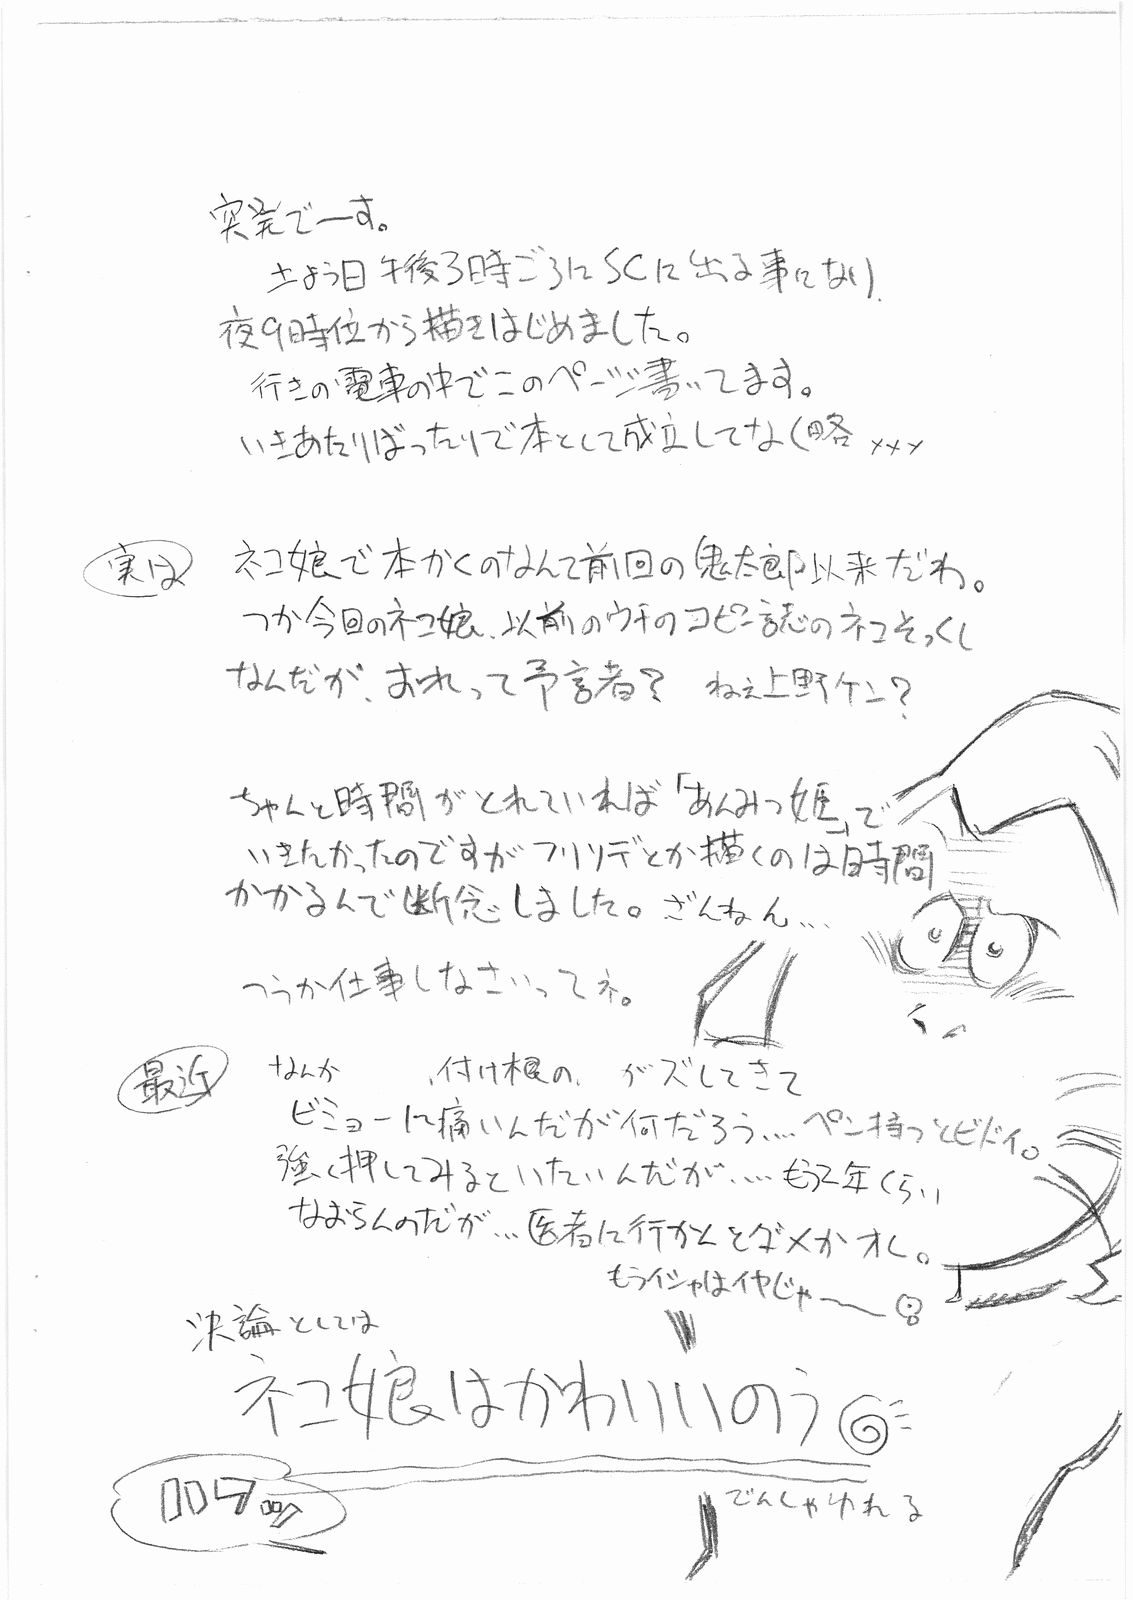 突発でーす。
土よう日午後3時ごろにSCに出る事になり、
夜9時位から描きはじめました。
行きの電車の中でこのページ書いてます。
いきあたりばったりで本として成立してな(略 xxx
実は
ネコ娘で本かくのなんて前回の鬼太郎以来だわ。
つか今回のネコ娘、以前のウチのコピー誌のネコそっくし
なんだが、おれって予言者? ねぇ上野ケン?
ちゃんと時間がとれていれば「あんみつ姫」で
いきたかったのですがフリソデとか描くのは時間
かかるんで断念しました。ざんねん…
つうか仕事しなさいってネ。
最近
なんか 、付け根の、がズレてきて
ビミョーに痛いんだが何だろう…. ペン持つとヒドイ。
強く押してみるといたいんだが…. もう2年くらい
なおらんのだが…医者に行かんとダメかオレ。
もうイシャはイヤじゃ〜
決論としては
ネコ娘はかわいいのう
でんしゃゆれる